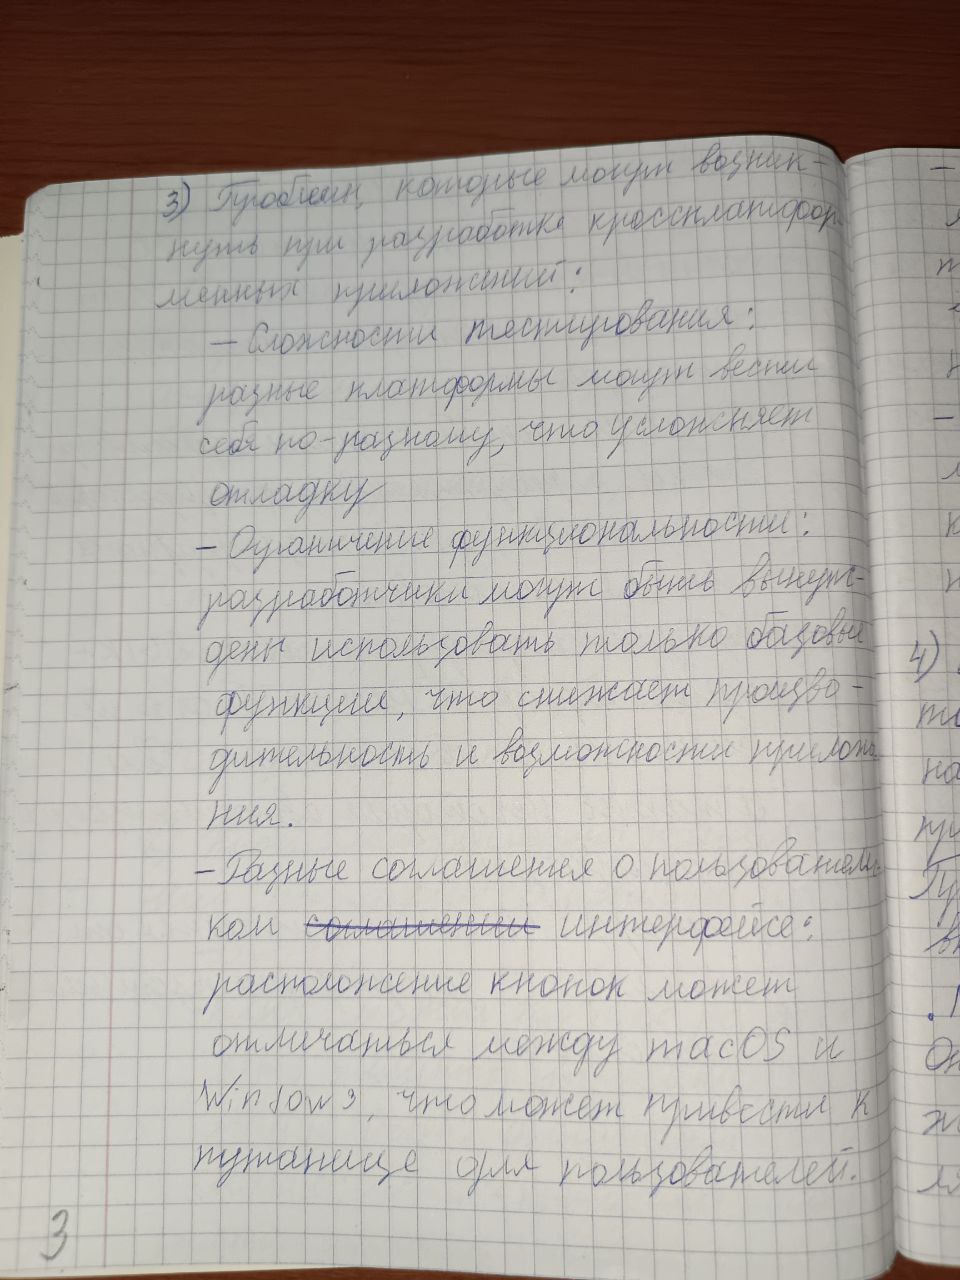 3) Проблемы, которые могут возник-
нуть при разработке кроссплатфор
менных приложений:
- Сложности тестирования:
разные платформы могут вести
себя по-разному, что усложняет
отладку
- Ограничение функциональности:
разработчики могут быть вынуж-
дены использовать только базовые
функции, что снижает произво-
дительность и возможности приложе
ния.
- Разные соглашения о пользовательс
ком соглашении интерфейсе:
расположение кнопок может
отличаться между macOS и
Windows, что может привести к
путанице для пользователей.
3
4)